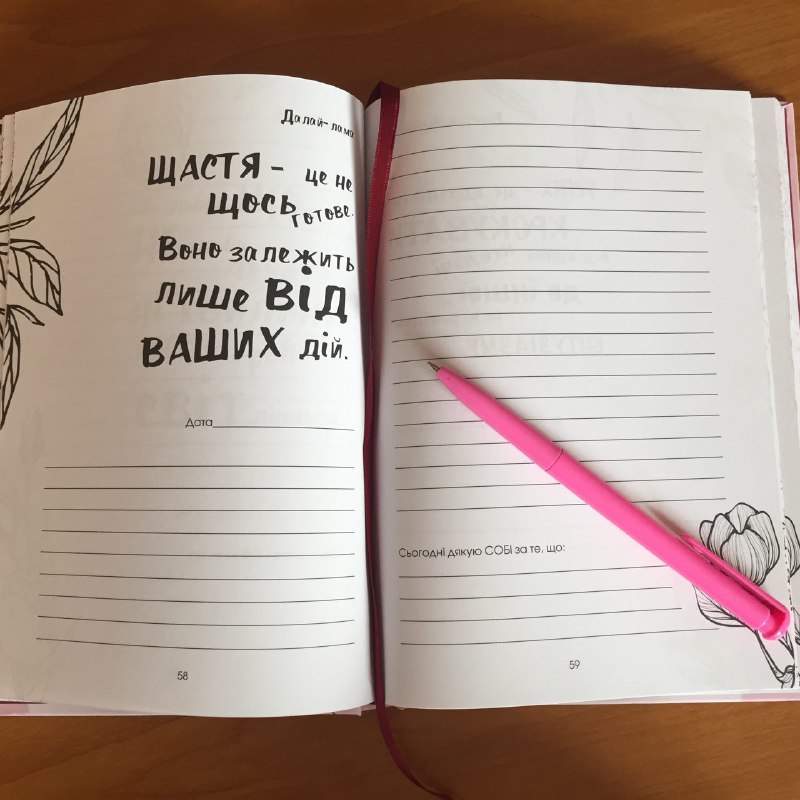 Далай-лама
ЩАСТЯ - це не
щось готове.
Воно залежить
лише ВІД
ВАШИХ дій.
Дата
58
Сьогодні дякую СОБІ за те, що:
59